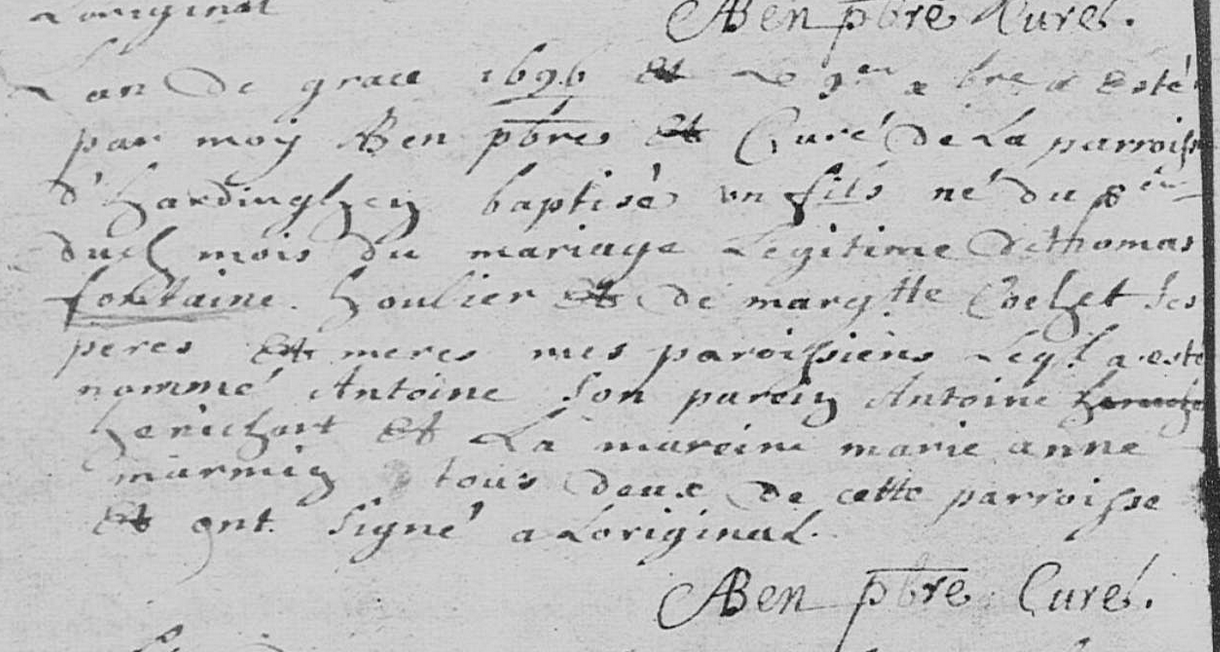 Loriginal
ABen pbre Curé.
Lan de grace 1696 et Le 9en xbre a esté
par moy ABen pbres et Curé de La parroisse
d'hardinghen baptisé un fils né du 8en
duch mois du mariage Legitime de thomas
fontaine houlier et de margtte Coehet ses
peres et meres mes paroissiens Leql a esté
nommé Antoine son parein Antoine
henichart et La mareine marie anne
marmin tous deux de cette parroisse
et ont signé a Loriginal.
ABen pbre Curé.